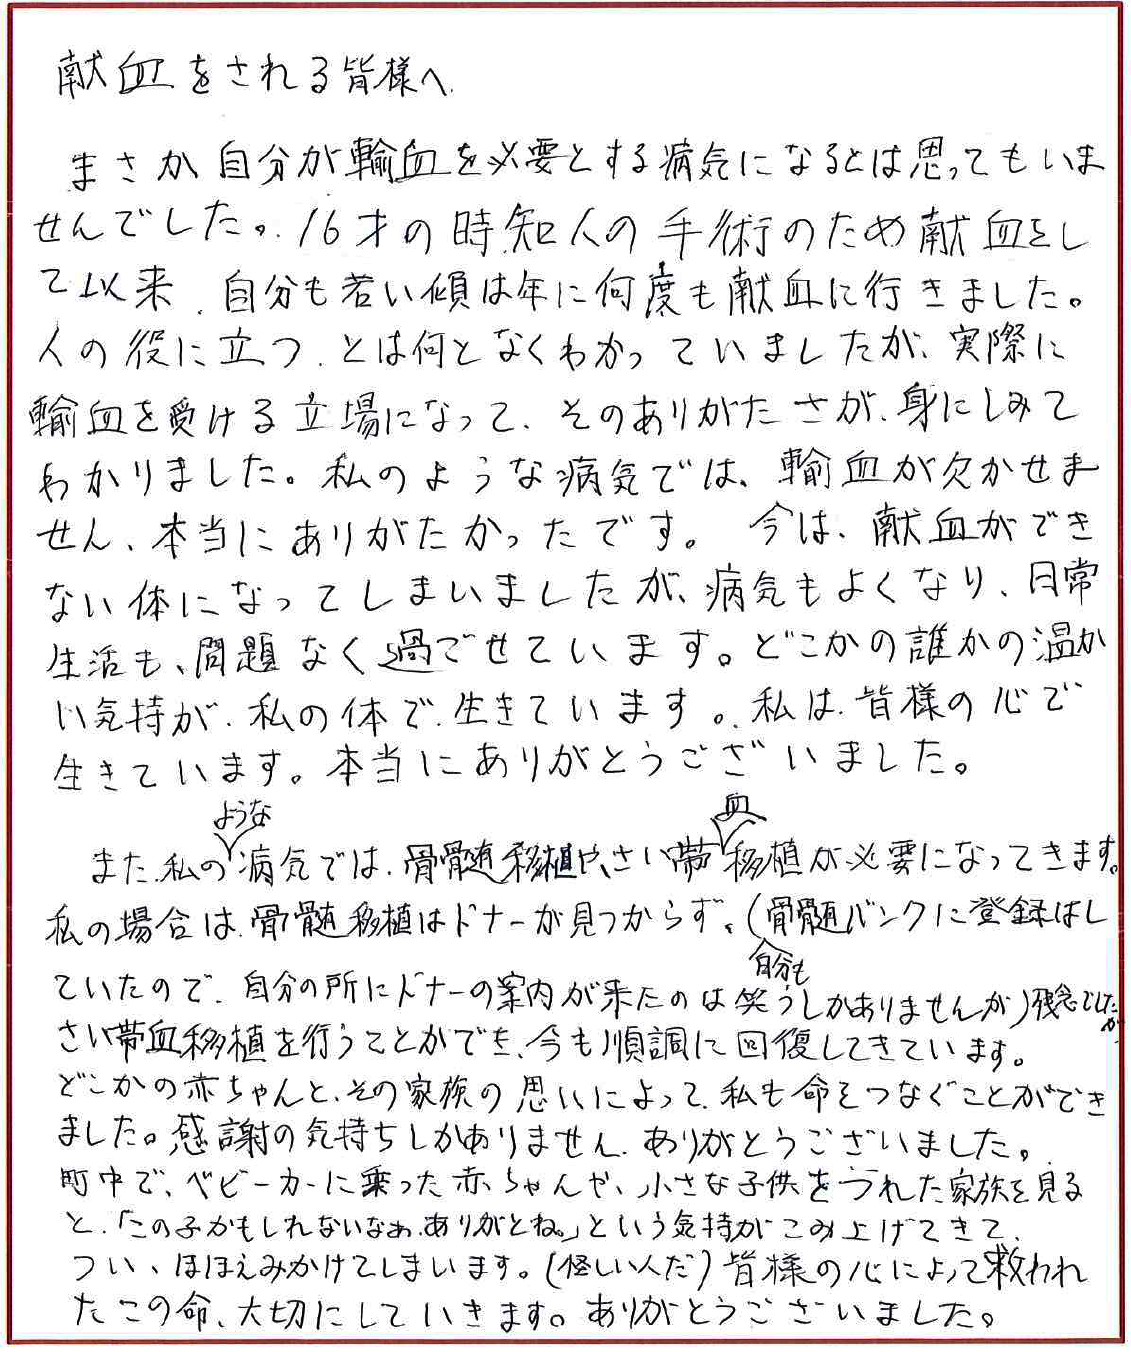 献血をされる皆様へ
まさか自分が輸血を必要とする病気になるとは思ってもいま
せんでした。16才の時知人の手術のため献血をし
て以来、自分も若い頃は年に何度も献血に行きました。
人の役に立つ、とは何となくわかっていましたが、実際に
輸血を受ける立場になって、そのありがたさが、身にしみて
わかりました。私のような病気では、輸血が欠かせま
せん、本当にありがたかったです。 今は、献血ができ
ない体になってしまいましたが、病気もよくなり、日常
生活も、問題なく過ごせています。どこかの誰かの温か
い気持が、私の体で、生きています。私は、皆様の心で
生きています。本当にありがとうございました。
また、私のような病気では、骨髄移植や、さい帯血移植が必要になってきます。
私の場合は、骨髄移植はドナーが見つからず、(骨髄バンクに登録はし
ていたので、自分の所にドナーの案内が来たのは自分も笑うしかありませんが)残念でしたが
さい帯血移植を行うことができ、今も順調に回復してきています。
どこかの赤ちゃんと、その家族の思いによって、私も命をつなぐことができ
ました。感謝の気持ちしかありません、ありがとうございました。
町中で、ベビーカーに乗った赤ちゃんや、小さな子供をつれた家族を見る
と、「この子かもしれないなぁ、ありがとね。」という気持がこみ上げてきて、
つい、ほほえみかけてしまいます。(怪しい人だ)皆様の心によって救われ
たこの命、大切にしていきます。ありがとうございました。